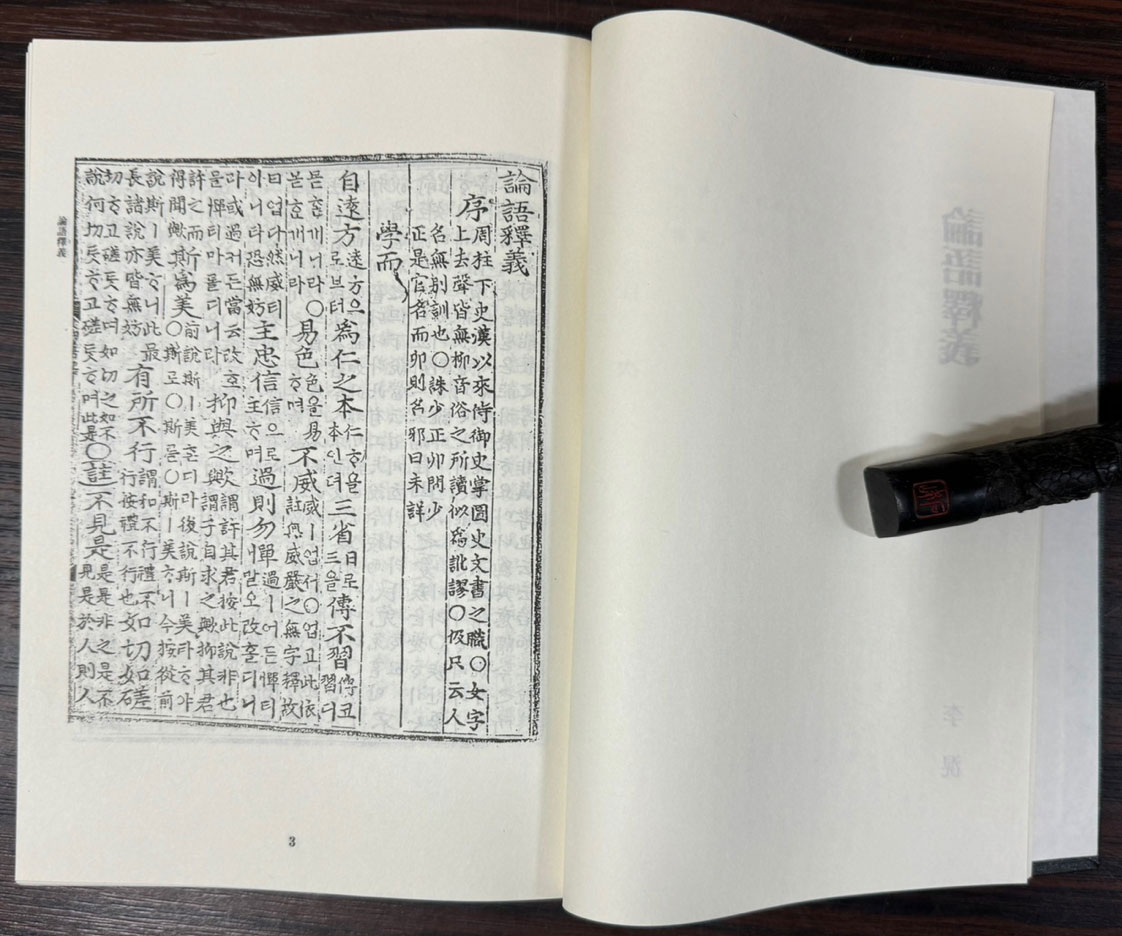 論語釋義
序
周柱下史漢以來侍御史掌圖史文書之職〇女字
上去聲皆無柳音俗之所讀似爲訛謬〇伋只云人
名無別訓也〇誅少正卯問少
正是官名而卯則名邪曰未詳
學而
自遠方
遠方으
로브터
爲仁之本
仁ᄒᆞᄂᆞᆫ
本인뎌
三省
日로
三을
傳不習
傳코
習디
몯ᄒᆞᆫ개니라〇
몯호개니라
易色
色을易
ᄒᆞ며
不威
威ㅣ업서〇업고此依
註無威嚴之無字釋故
曰업다然威티
아니타恐無妨
主忠信
信으로
主ᄒᆞ며
過則勿憚
過ㅣ어든憚티
말오改홀디니
라或過거든當云改호
믈憚티마롤디니라
抑與之歟
謂許其君按此說非也
謂子自求之歟抑其君
許之而
得聞歟
斯爲美
〇前說斯ㅣ美혼디라後說斯ㅣ美라ᄒᆞ야
斯로〇斯를〇斯ㅣ美ᄒᆞ니今按從前
說斯ㅣ美ᄒᆞ니此最
長諸說亦皆無妨
有所不行
行謂知和不行禮不
行按禮不行也
如切如磋
切ᄒᆞ고磋ᄐᆞᆺᄒᆞ며如切之如不
說何切ᄐᆞᆺᄒᆞ고磋ᄐᆞᆺᄒᆞ며此是
〇註不見是
是是非之是不
見是於人則人
論語釋義
3
論語釋義
李滉